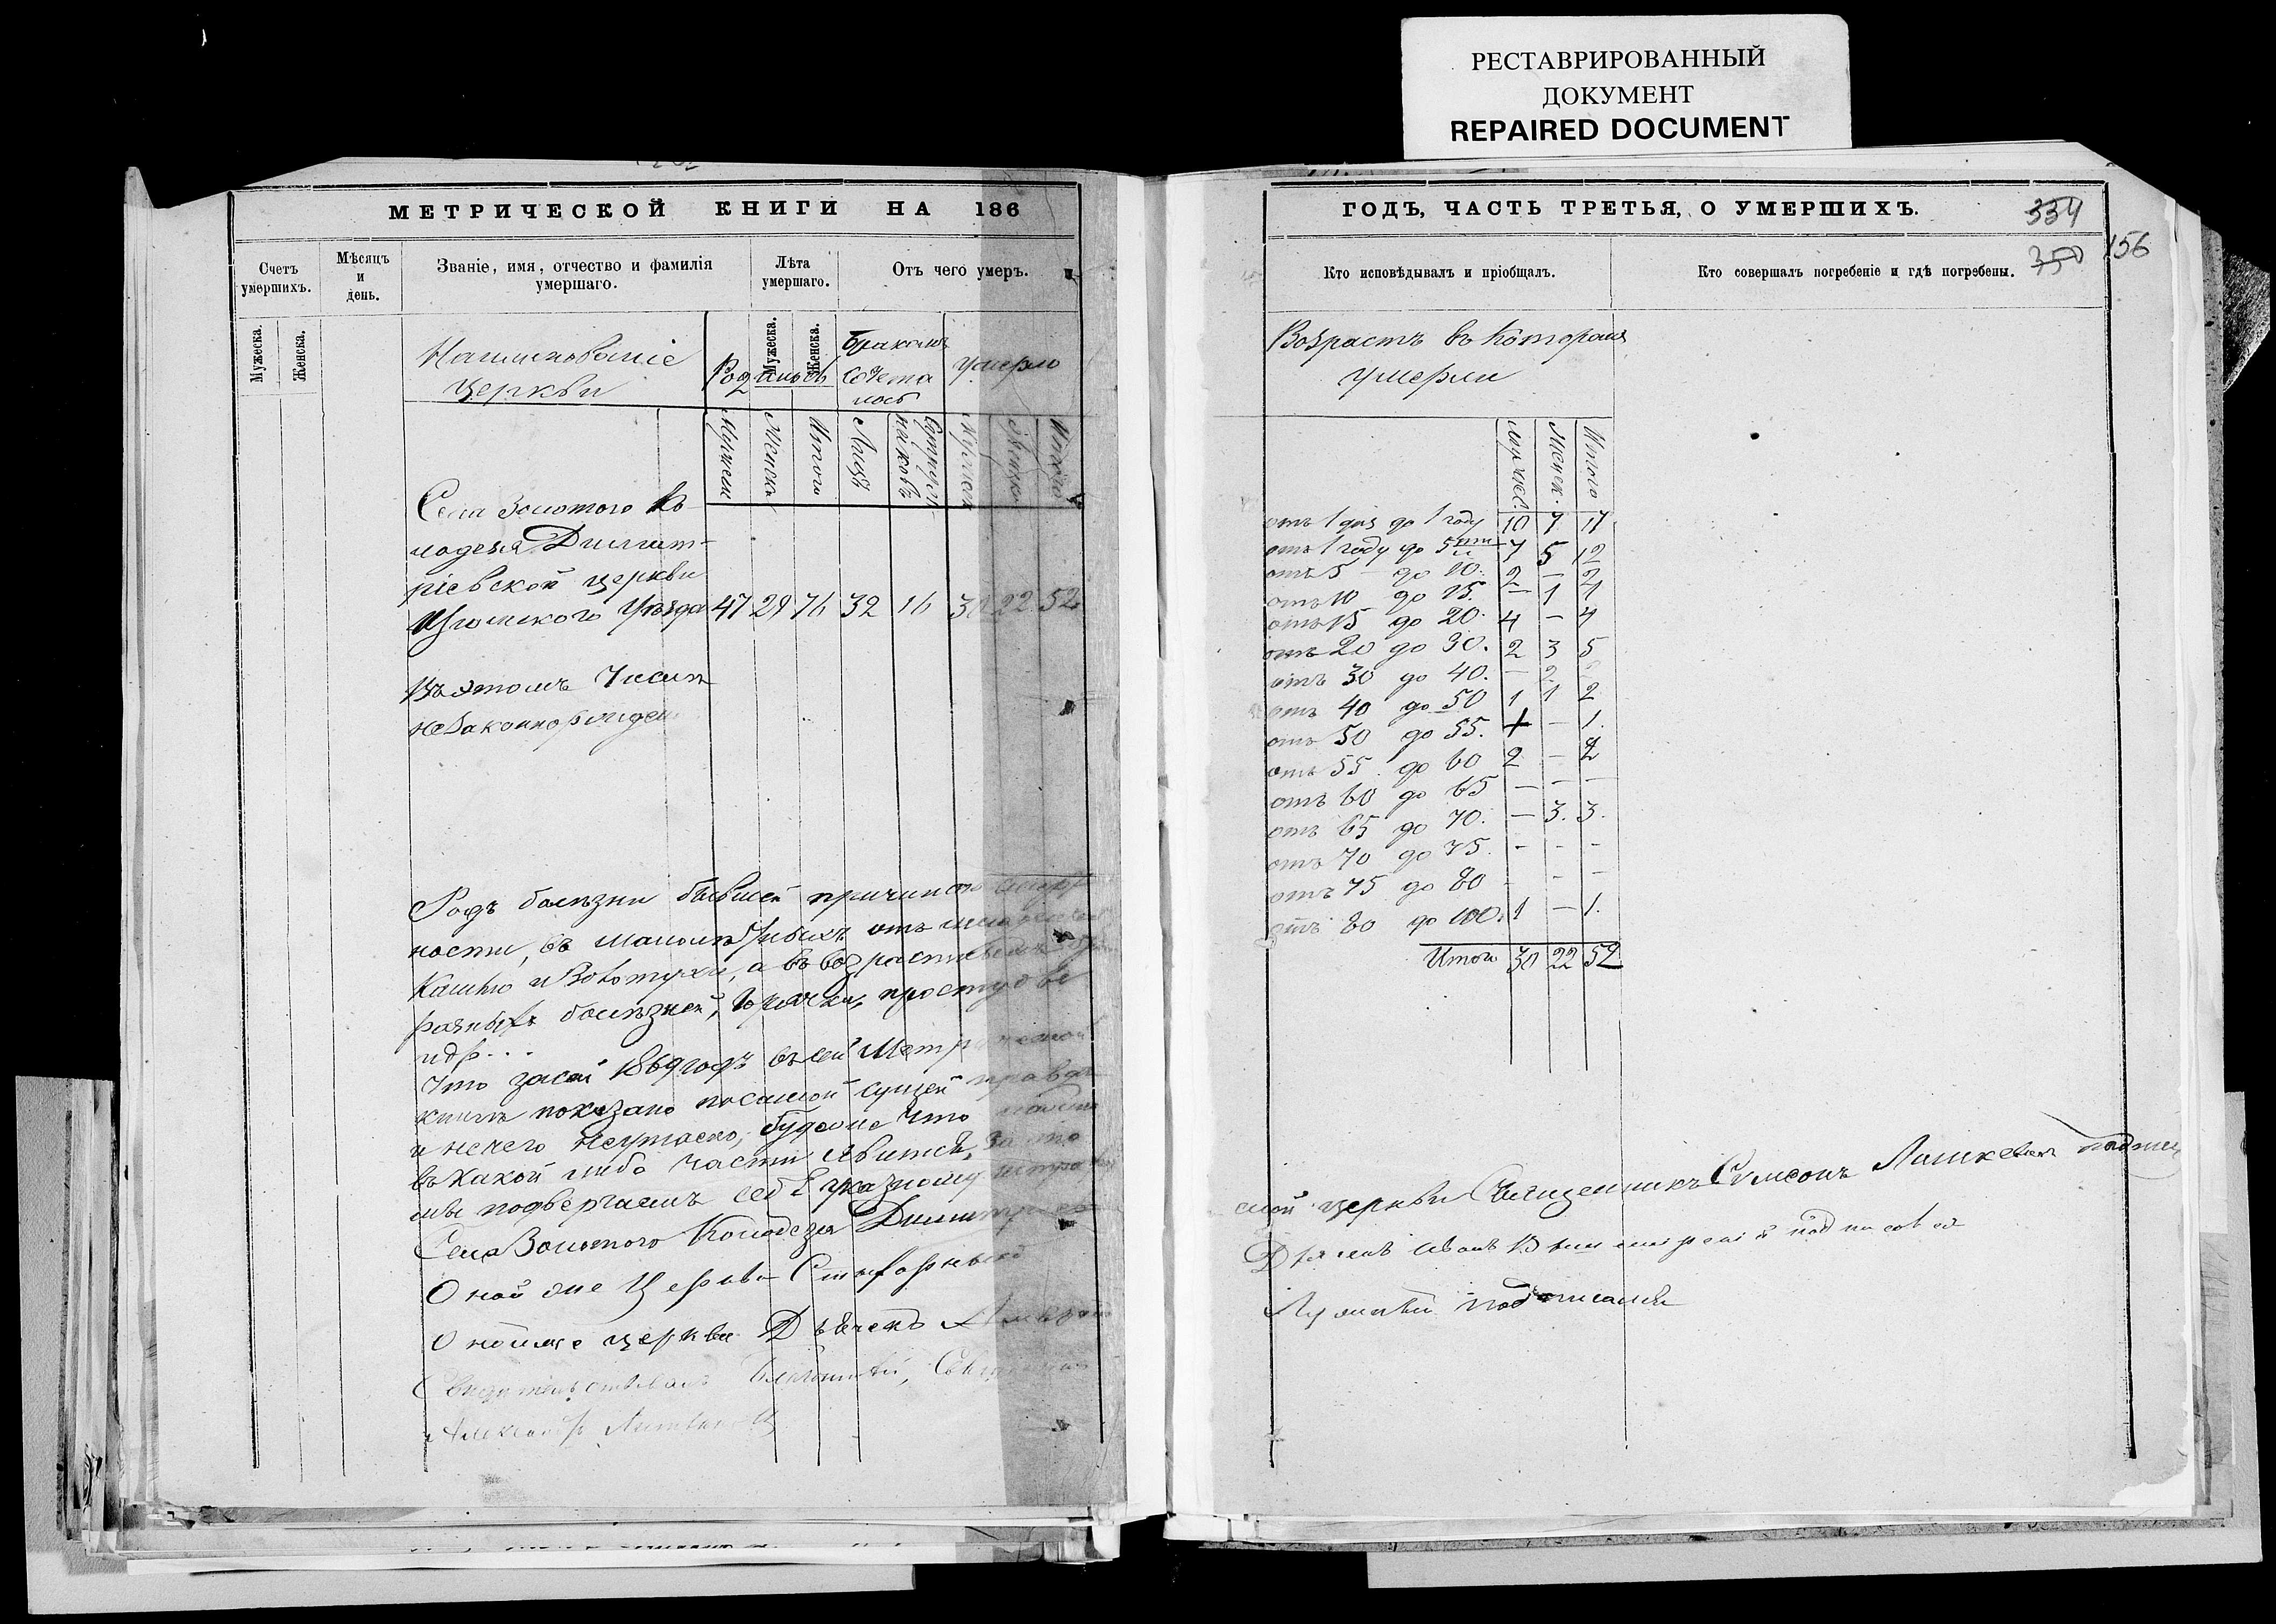 РЕСТАВРИРОВАННЫЙ
ДОКУМЕНТ
REPAIRED DOCUMENT
МЕТРИЧЕСКОЙ КНИГИ НА 186
Счетъ умершихъ.
Мѣсяцъ и день.
Званіе, имя, отчество и фамилія умершаго.
Лѣта умершаго.
Отъ чего умеръ.
Мужеска.
Женска.
Мужеска.
Женска.
Наименованіе
Церкви
Родилось
Бракомъ
Сочета
лось
Умерло
Мужеск
Женск
Итого
Лицъ
Супруж
наковъ
Мужеск
Женска
Итого
Села Золотого Ко
лодезя Димит-
ріевской церкви
Изюмскаго Уѣзда 47 29 76 32 16 30 22 52
Въ этомъ Числѣ
незаконнорожден
Родъ болѣзни бывшей причиною смерт
ности, въ малолѣтныхъ отъ
Кашлю и Золотухи, а въ возрастныхъ отъ
разныхъ болѣзней, горячки, простуды
и др...
Что засей 1869 годъ въ сей Метрической
книгѣ показано по самой сущей правдѣ
и нечего неутаено, буде же что
въ какой либо части явится, за то
мы подвергаемъ себѣ указному штрафу
Села Золотого Колодезя Димитріев
Оной же Церкви
Оной же церкви Дьячекъ
Свидетельствовалъ Благочинный, Священникъ
Александръ
ГОДЪ, ЧАСТЬ ТРЕТЬЯ, О УМЕРШИХЪ.
334
350
156
Кто исповѣдывалъ и пріобщалъ.
Кто совершалъ погребеніе и гдѣ погребены.
Возрастъ въ которомъ
умерли
Мужеск.
Женск.
Итого
отъ 1 дня до 1 году 10 7 17
отъ 1 году до 5ти 7 5 12
отъ 5 до 10. 2 — 2
отъ 10 до 15. — 1 1
отъ 15 до 20. 4 — 4
отъ 20 до 30. 2 3 5
отъ 30 до 40. — 2 2
отъ 40 до 50 1 1 2
отъ 50 до 55. 1 — 1.
отъ 55 до 60 2 — 2
отъ 60 до 65 — — —
отъ 65 до 70. — 3. 3.
отъ 70 до 75. - - -
отъ 75 до 80 - - -
отъ 80 до 100. 1 — 1.
Итого 30 22 52
ской церкви Священникъ Симеонъ
Иванъ подписался
подписался